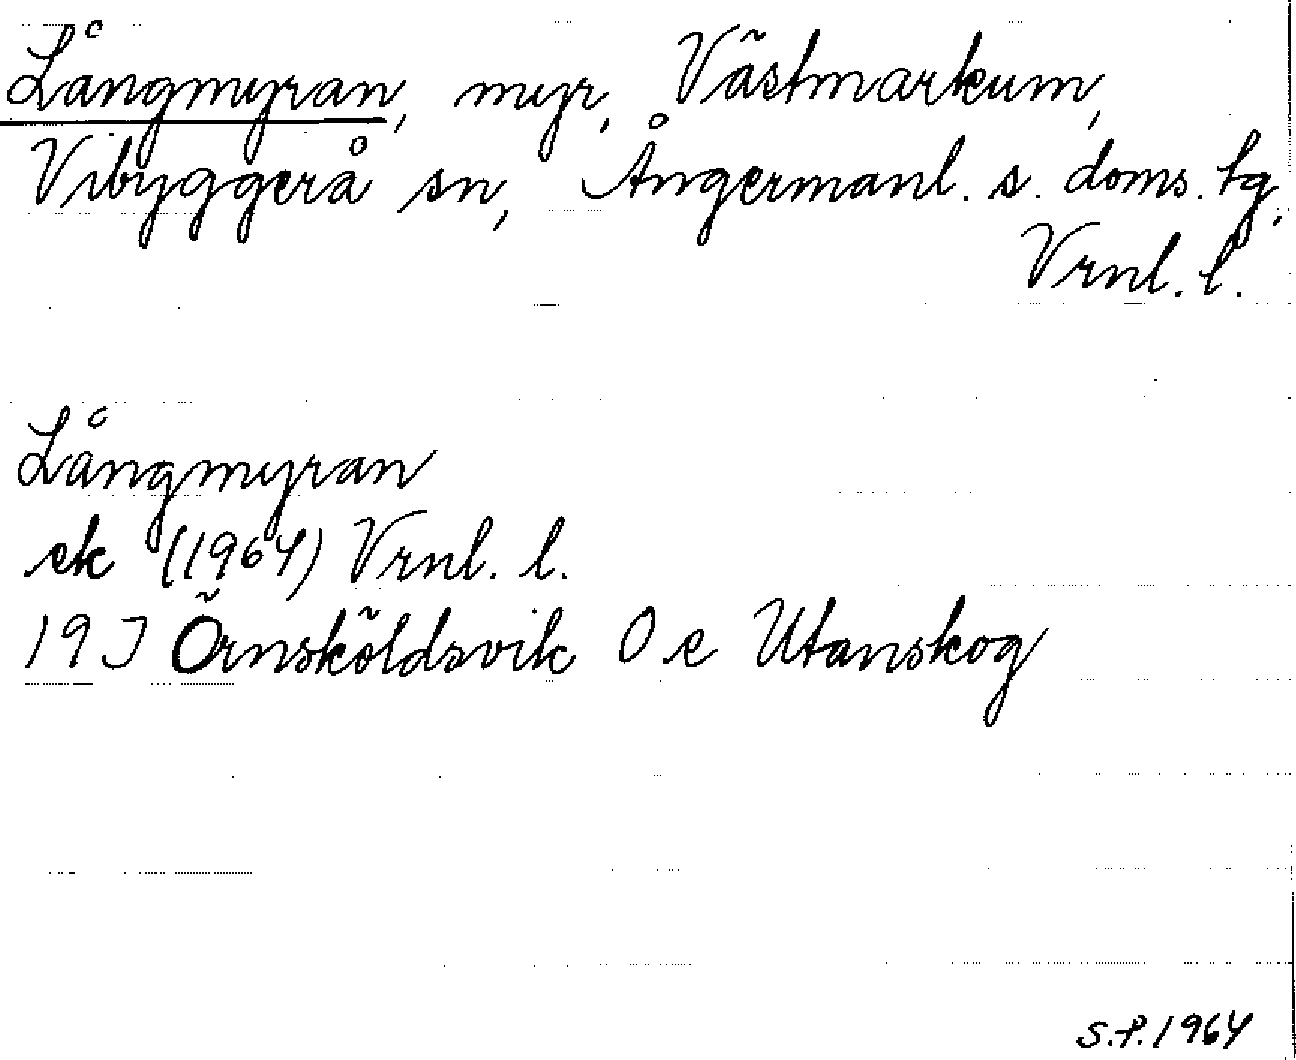 Långmyran, myr, Västmarkum,
Vibyggerå sn, Ångermanl. s. doms. tg,
Vrnl. l.
Långmyran
ek (1964) Vrnl. l.
19 J Örnsköldsvik O e Utanskog
S.P. 1964